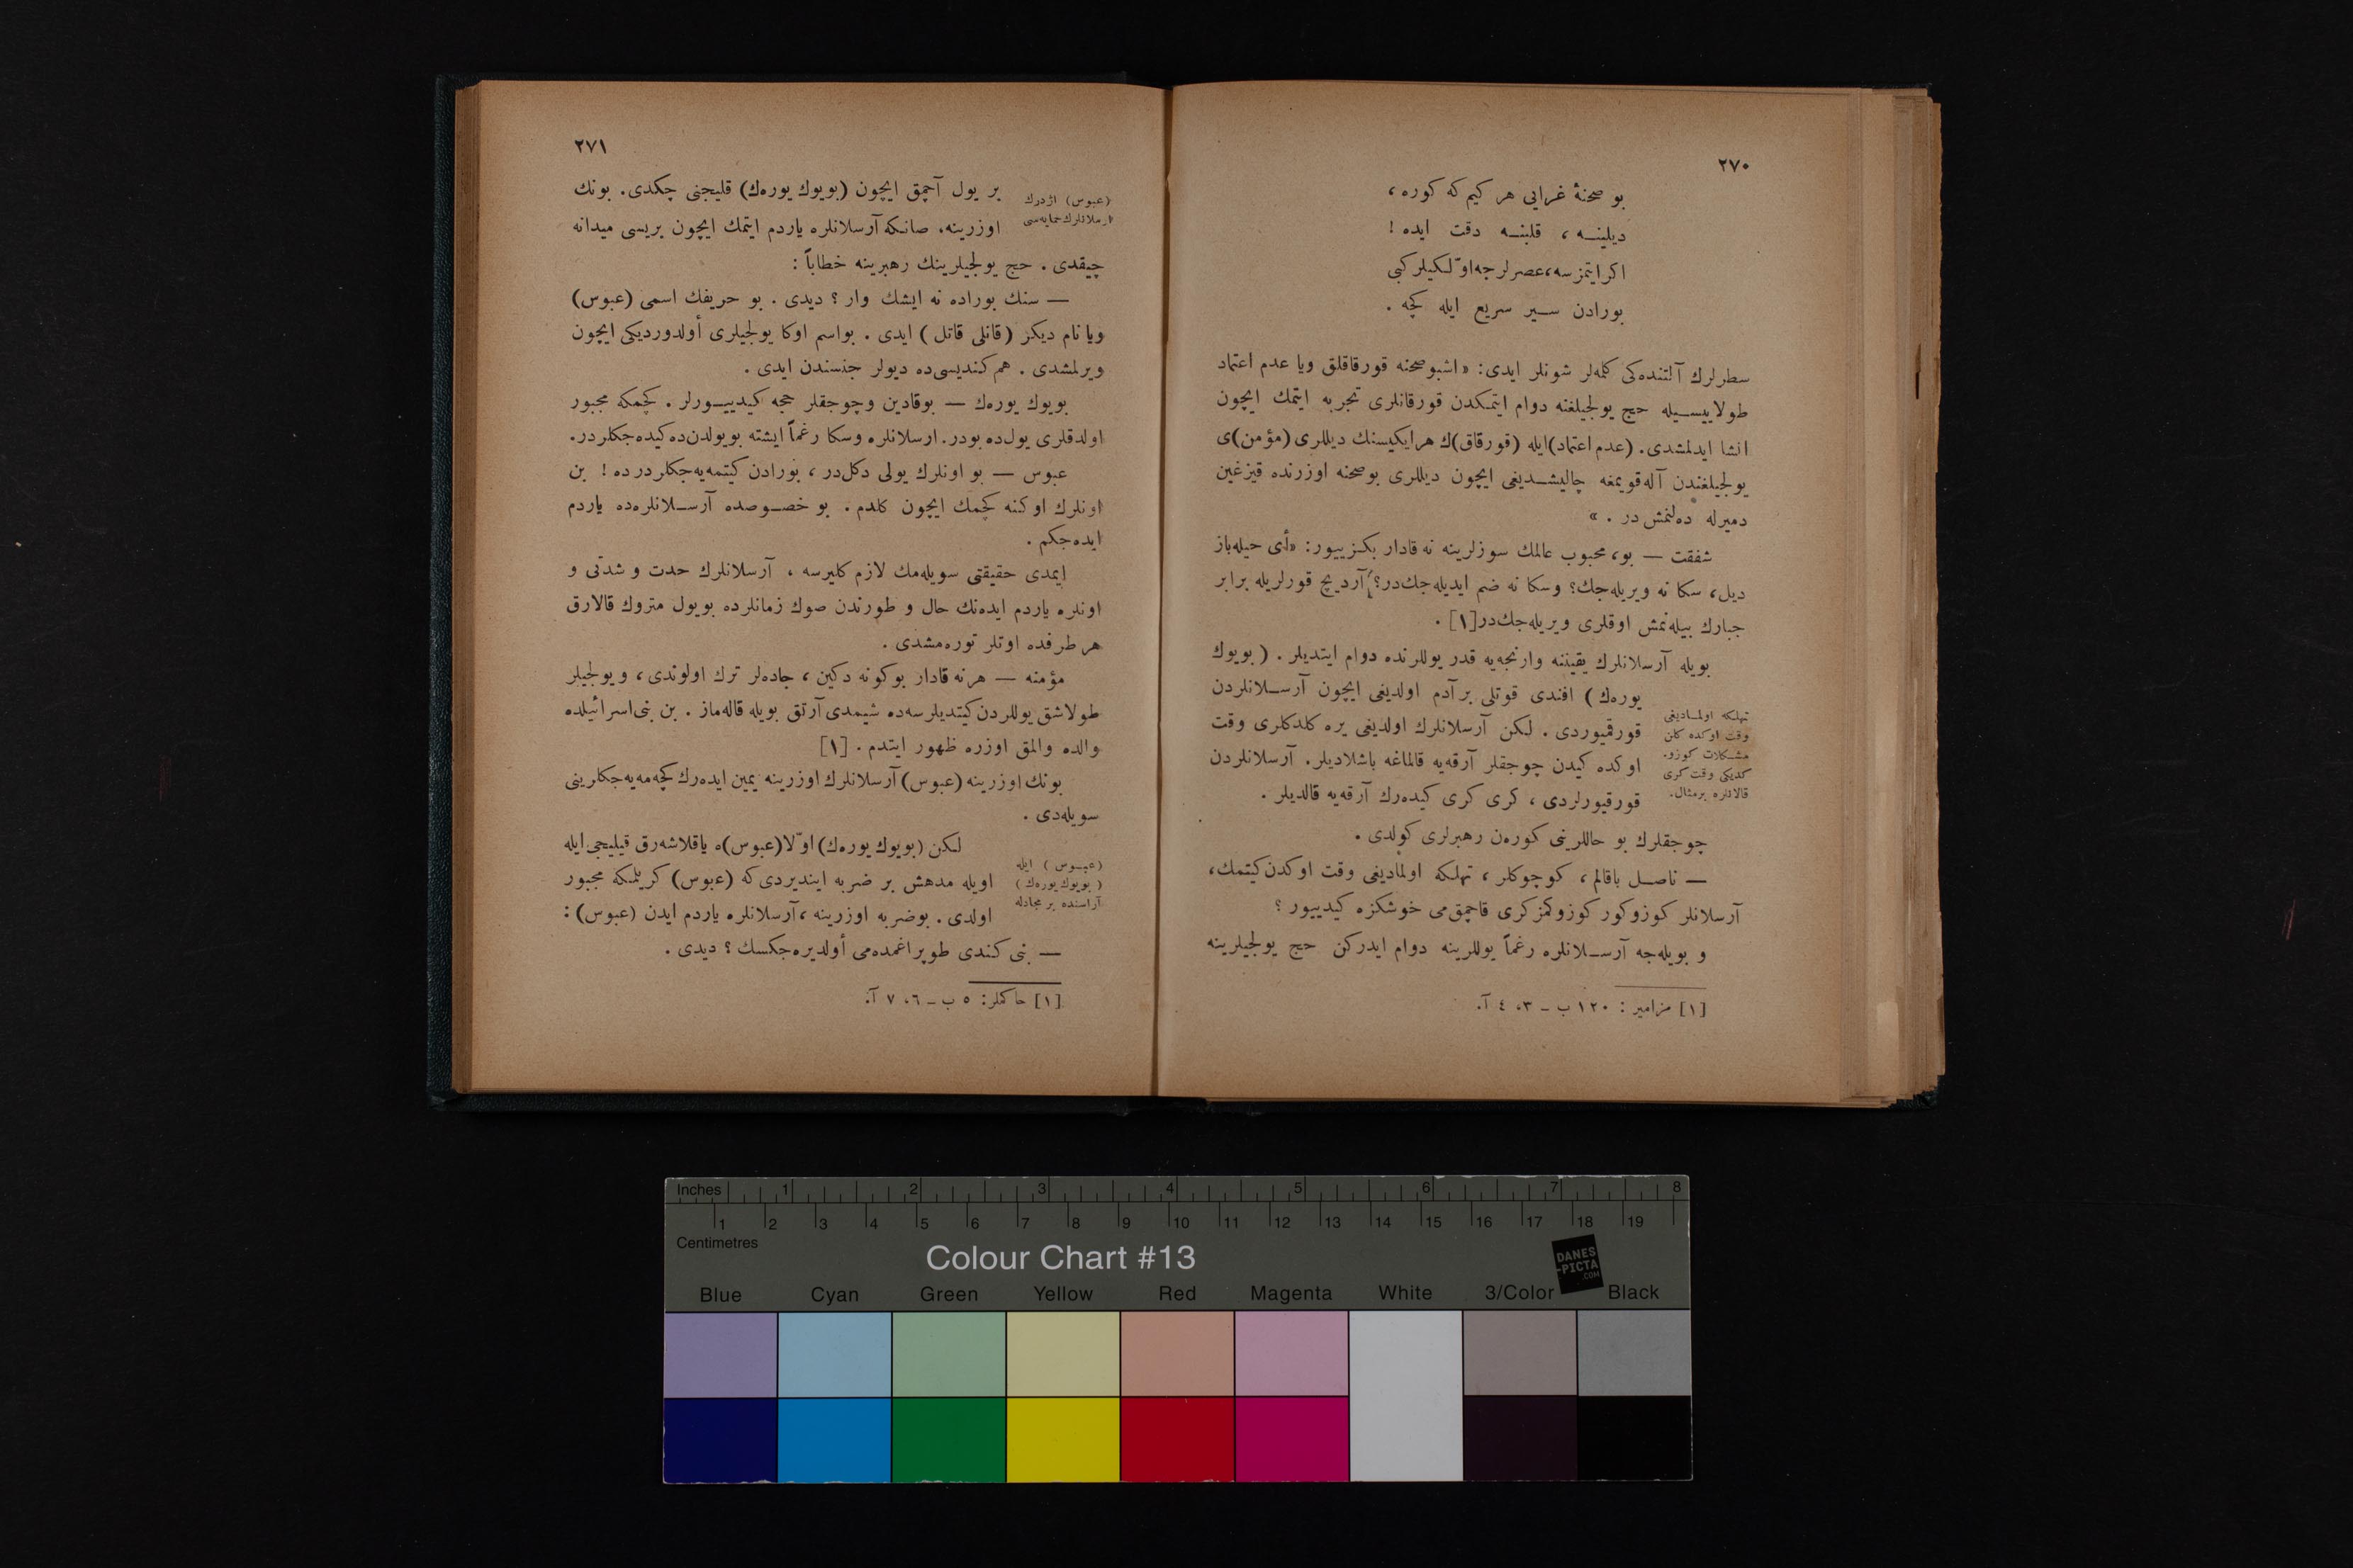 ٢٧٠
بو صحنهٔ غرایبی هر کیم که کوره ،
دیلینـه ، قلبنـه دقت ایده !
اکر ایتمزسه، عصرلرجه اوّلکیلر کبی
بورادن سـیر سریع ایله کچه .
سطرلرك آلتنده‌کی کله‌لر شونلر ایدی: « اشبو صحنه قورقاقلق ویا عدم اعتماد
طولاییسـیله حج یولجیلغنه دوام ایتمکدن قورقانلری تجربه ایتمك ایچون
انشا ایدلمشدی. (عدم اعتماد) ایله (قورقاق)ك هر ایکیسنك دیللری (مؤمن)ی
یولجیلغندن آله‌قویمغه چالیشـدیغی ایچون دیللری بو صحنه اوزرنده قیزغین
دمیرله ده‌لنمش در . »
شفقت — بو، محبوب عالمك سوزلرینه نه قادار بکـزییور: «أی حیله‌باز
دیل، سکا نه ویریله‌جك؟ وسکا نه ضم ایدیله‌جك‌در؟ آردیچ قورلریله برابر
جبارك بیله‌نمش اوقلری ویریله‌جك‌در[١] .
بویله آرسلانلرك یقیننه وارنجه‌یه قدر یوللرنده دوام ایتدیلر . (بویوك
یوره‌ك) افندی قوتلی بر آدم اولدیغی ایچون آرسـلانلردن
قورقمیوردی . لکن آرسلانلرك اولدیغی یره کلدکلری وقت
اوکده کیدن چوجقلر آرقه‌یه قالماغه باشلادیلر. آرسلانلردن
قورقیورلردی ، کری کری کیده‌رك آرقه‌یه قالدیلر .
تهلکه اولمـادیغی
وقت اوکده کلن
مشـکلات کوزو.
کدیکی وقت کری
قالانلره برمثال.
چوجقلرك بو حاللرینی کوره‌ن رهبرلری کولدی .
— ناصـل باقالم ، کوچوکلر ، تهلکه اولمادیغی وقت اوکدن کیتمك،
آرسلانلر کوزوکور کوزوکمز کری قاچمق‌می خوشکزه کیدییور ؟
و بویله‌جه آرسـلانلره رغماً یوللرینه دوام ایدرکن حج یولجیلرینه
[١] مزامیر : ١٢٠ ب ــ ٣، ٤ آ.
٢٧١
بر یول آچمق ایچون (بویوك یوره‌ك) قلیجنی چکدی. بونك
اوزرینه، صانکه آرسلانلره یاردم ایتمك ایچون بریسی میدانه
(عبوس) اژدرك
ارسلانلرك حمایه‌سی
چیقدی . حج یولجیلرینك رهبرینه خطاباً :
— سنك بوراده نه ایشك وار ؟ دیدی . بو حریفك اسمی (عبوس)
ویا نام دیکر (قانلی قاتل) ایدی . بواسم اوکا یولجیلری أولدوردیکی ایچون
ویرلمشدی . هم کندیسی‌ده دیولر جنسندن ایدی .
بویوك یوره‌ك — بوقادین وچوجقلر حجه کیدییـورلر . کچمکه مجبور
اولدقلری یول‌ده بودر. ارسلانلره وسکا رغماً ایشته بویولدن‌ده کیده‌جکلردر.
عبوس — بو اونلرك یولی دکل‌در ، بورادن کیتمه‌یه‌جکلردر ده ! بن
اونلرك اوکنه کچمك ایچون کلدم . بو خصـوصده آرسـلانلره‌ده یاردم
ایده‌جکم .
ایمدی حقیقتی سویله‌مك لازم کلیرسه ، آرسلانلرك حدت و شدتی و
اونلره یاردم ایده‌نك حال و طورندن صوك زمانلرده بویول متروك قالارق
هر طرفده اوتلر توره‌مشدی .
مؤمنه — هر نه قادار بوکونه دکین ، جاده‌لر ترك اولوندی ، و یولجیلر
طولاشق یوللردن کیتدیلرسه‌ده شیمدی آرتق بویله قاله‌ماز . بن بنی‌اسرائیلده
والده والمق اوزره ظهور ایتدم . [١]
بونك اوزرینه (عبوس) آرسلانلرك اوزرینه یمین ایده‌رك کچه‌مه‌یه‌جکلرینی
سویله‌دی .
لکن (بویوك یوره‌ك) اوّلا (عبوس)ه یاقلاشه‌رق قیلیجی ایله
اویله مدهش بر ضربه ایندیردی که (عبوس) کریلمکه مجبور
اولدی . بوضربه اوزرینه ، آرسلانلره یاردم ایدن (عبوس) :
(عبـوس) ایله
(بویوك یوره‌ك)
آراسنده بر مجادله
— بنی کندی طوپراغمده‌می أولدیره‌جکسك ؟ دیدی .
[١] حاکملر: ٥ ب ــ ٦، ٧ آ.
Inches 1 2 3 4 5 6 7 8
1 2 3 4 5 6 7 8 9 10 11 12 13 14 15 16 17 18 19
Centimetres
Colour Chart #13
DANES
-PICTA
.COM
Blue Cyan Green Yellow Red Magenta White 3/Color Black